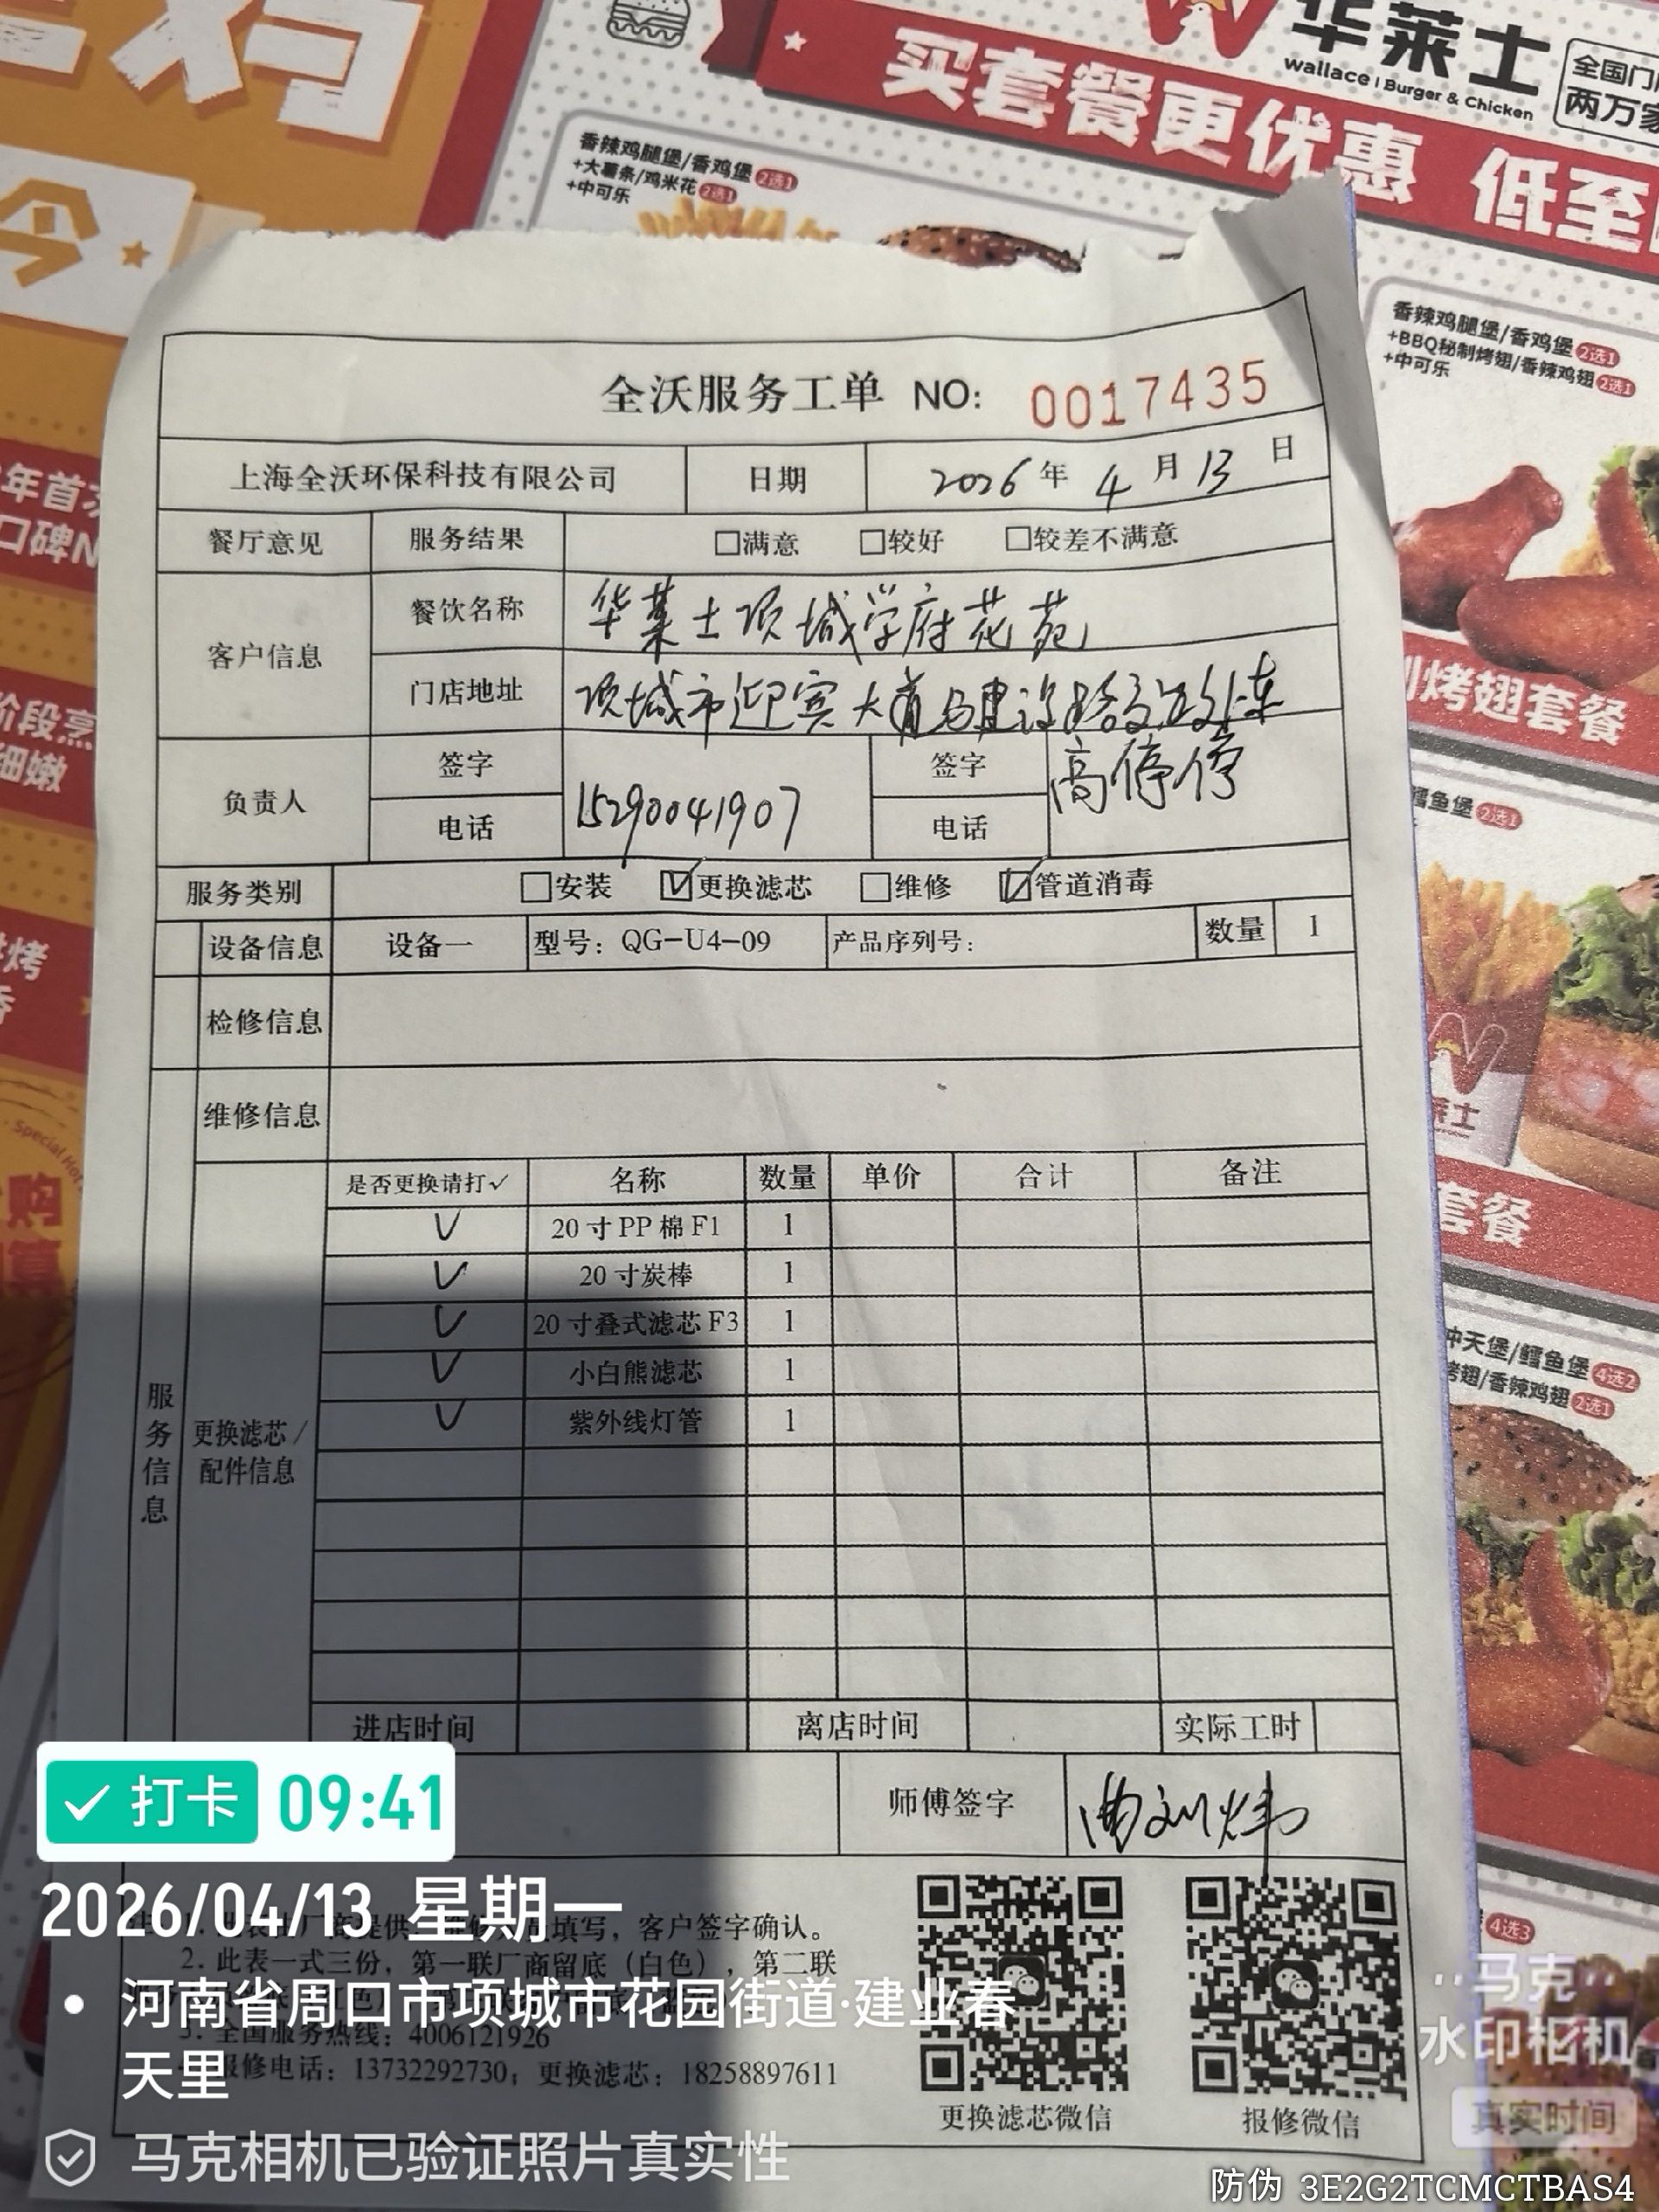 华莱士
wallace | Burger & Chicken
全国门
两万家
买套餐更优惠 低至
香辣鸡腿堡/香鸡堡 2选1
+大薯条/鸡米花 2选1
+中可乐
今
香辣鸡腿堡/香鸡堡 2选1
+BBQ秘制烤翅/香辣鸡翅 2选1
+中可乐
年首
口碑
烤翅套餐
细嫩
鳕鱼堡 2选1
套餐
冲天堡/鳕鱼堡 4选2
烤翅/香辣鸡翅 2选1
4选3
购
全沃服务工单 NO: 0017435
上海全沃环保科技有限公司 日期 2026 年 4 月 13 日
餐厅意见 服务结果 □满意 □较好 □较差不满意
客户信息 餐饮名称 华莱士项城学府花苑
门店地址 项城市迎宾大道与建设路交叉东
负责人 签字 签字 高停停
电话 15290041907 电话
服务类别 □安装 ☑更换滤芯 □维修 ☑管道消毒
设备信息 设备一 型号: QG-U4-09 产品序列号: 数量 1
检修信息
维修信息
服务信息
更换滤芯/配件信息
是否更换请打✓ 名称 数量 单价 合计 备注
✓ 20寸PP棉F1 1
✓ 20寸炭棒 1
✓ 20寸叠式滤芯F3 1
✓ 小白熊滤芯 1
✓ 紫外线灯管 1
进店时间 离店时间 实际工时
师傅签字
填写，客户签字确认。
2. 此表一式三份，第一联厂商留底（白色），第二联
3. 全国服务热线: 4006121926
报修电话: 13732292730; 更换滤芯: 18258897611
更换滤芯微信 报修微信
打卡 09:41
2026/04/13 星期一
河南省周口市项城市花园街道·建业春
天里
马克相机已验证照片真实性
马克
水印相机
真实时间
防伪 3E2G2TCMCTBAS4